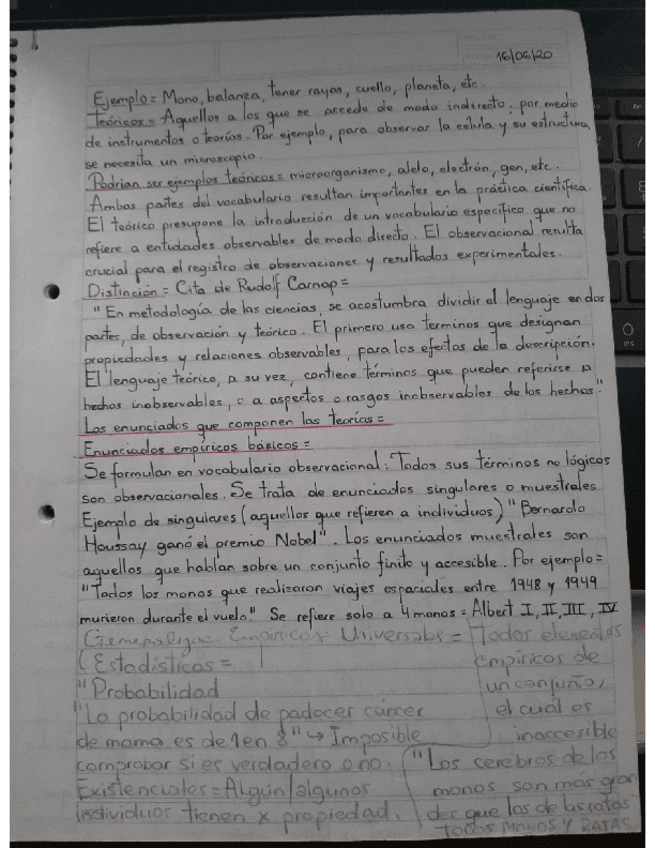 16/06/20
Ejemplo= Mono, balanza, tener rayos, cuello, planeta, etc.
Teóricos= Aquellos a los que se accede de modo indirecto, por medio
de instrumentos o teorías. Por ejemplo, para observar la célula y su estructura,
se necesita un microscopio.
Podrían ser ejemplos teóricos= microorganismo, alelo, electrón, gen, etc.
Ambas partes del vocabulario resultan importantes en la práctica científica.
El teórico presupone la introducción de un vocabulario específico que no
refiere a entidades observables de modo directo. El observacional resulta
crucial para el registro de observaciones y resultados experimentales.
Distinción= Cita de Rudolf Carnap=
"En metodología de las ciencias, se acostumbra dividir el lenguaje en dos
partes, de observación y teórico. El primero usa términos que designan
propiedades y relaciones observables, para los efectos de la descripción.
El lenguaje teórico, a su vez, contiene términos que pueden referirse a
hechos inobservables, o a aspectos o rasgos inobservables de los hechos."
Los enunciados que componen las teorías=
Enunciados empíricos básicos=
Se formulan en vocabulario observacional: Todos sus términos no lógicos
son observacionales. Se trata de enunciados singulares o muestrales
Ejemplo de singulares (aquellos que refieren a individuos) "Bernardo
Houssay ganó el premio Nobel". Los enunciados muestrales son
aquellos que hablan sobre un conjunto finito y accesible. Por ejemplo=
"Todos los monos que realizaron viajes espaciales entre 1948 y 1949
murieron durante el vuelo." Se refiere solo a 4 monos= Albert I, II, III, IV
Generalizac. Empíricas: Universales =
(Estadísticos =
"Probabilidad
"La probabilidad de padecer cáncer
de mama es de 1 en 8" → Imposible
comprobar si es verdadero o no.
Existenciales= Algún/algunos
individuos tienen x propiedad.
Todos elementos
empíricos de
un conjunto,
el cuál es
inaccesible
"Los cerebros de los
monos son más gran
des que los de las ratas
TODOS MONOS Y RATAS